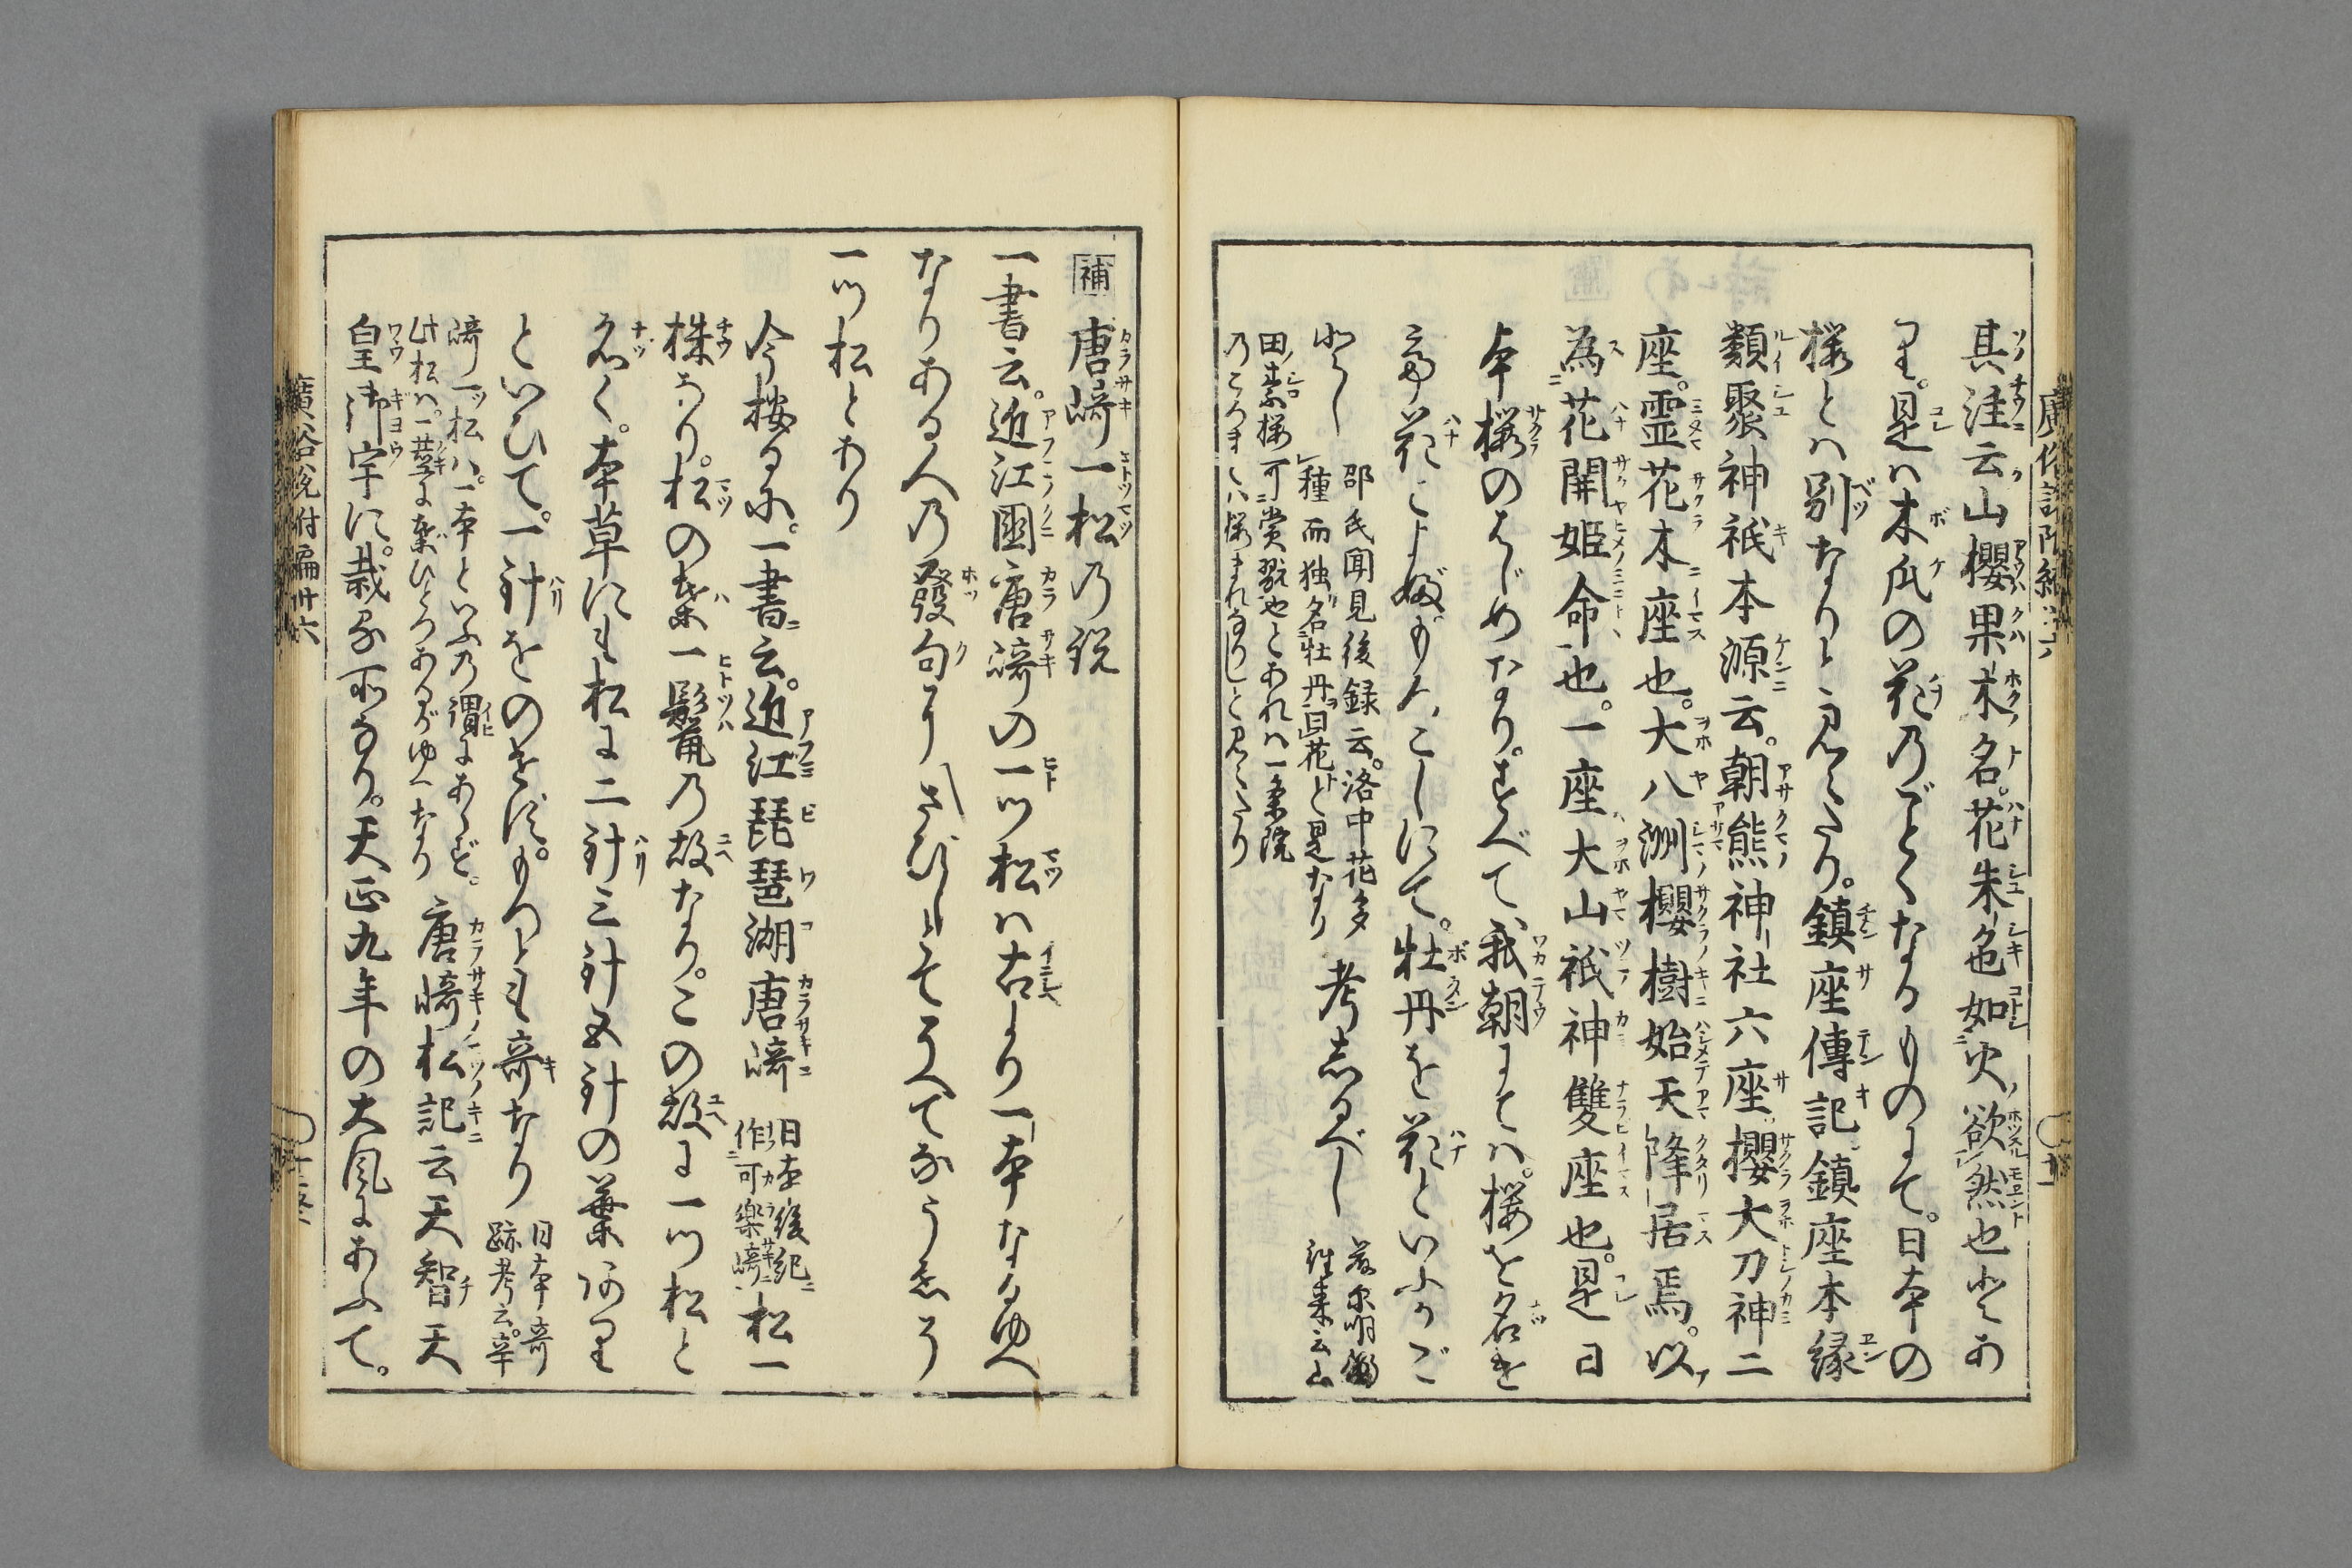 其注云山櫻果木名花朱色如火欲然也とあ
り。是ハ木瓜の花乃ごとくなるものにて。日本の
櫻とハ別なりと見へたり。鎮座傳記鎮座本縁
類聚神祇本源云。朝熊神社六座櫻大刀神二
座。霊花木座也。大八洲櫻樹始天降居焉。以
為花開姫命也。一座大山祇神雙座也。是日
本櫻のはじめなり。すべて、我朝にてハ。櫻を名を
花とよぶ
にて。牡丹を花といふがご
とし
邵氏聞見後録云。洛中花多
種而独名牡丹曰花と是なり
考しるべし
往来云山
田ノ素櫻可賞翫也とあれハ一条院
乃ころまてハ櫻まれなりしと見へたり
補 唐﨑一松乃説
一書云。近江國唐﨑の一ツ松ハ古より一本なるゆへ
なりある人乃發句に
一ツ松とあり
今按るに。一書云。近江琵琶湖唐﨑
日本後紀ニ
作可樂﨑
松一
株あり。松の葉一鬣乃故なり。この故に一ツ松と
名く。本草にも松に二針三針五針の葉ハあれ
といひて。一針をのせず。もつとも奇なり
日本奇
跡考云。辛
﨑一ッ松ハ。一本といふ乃謂にあらず。
此松ハ一葉に葉ひとつあるがゆへなり
唐﨑松記云天智天
皇御宇に。栽る所なり。天正九年の大風にあふて。
廣俗説附編卅六